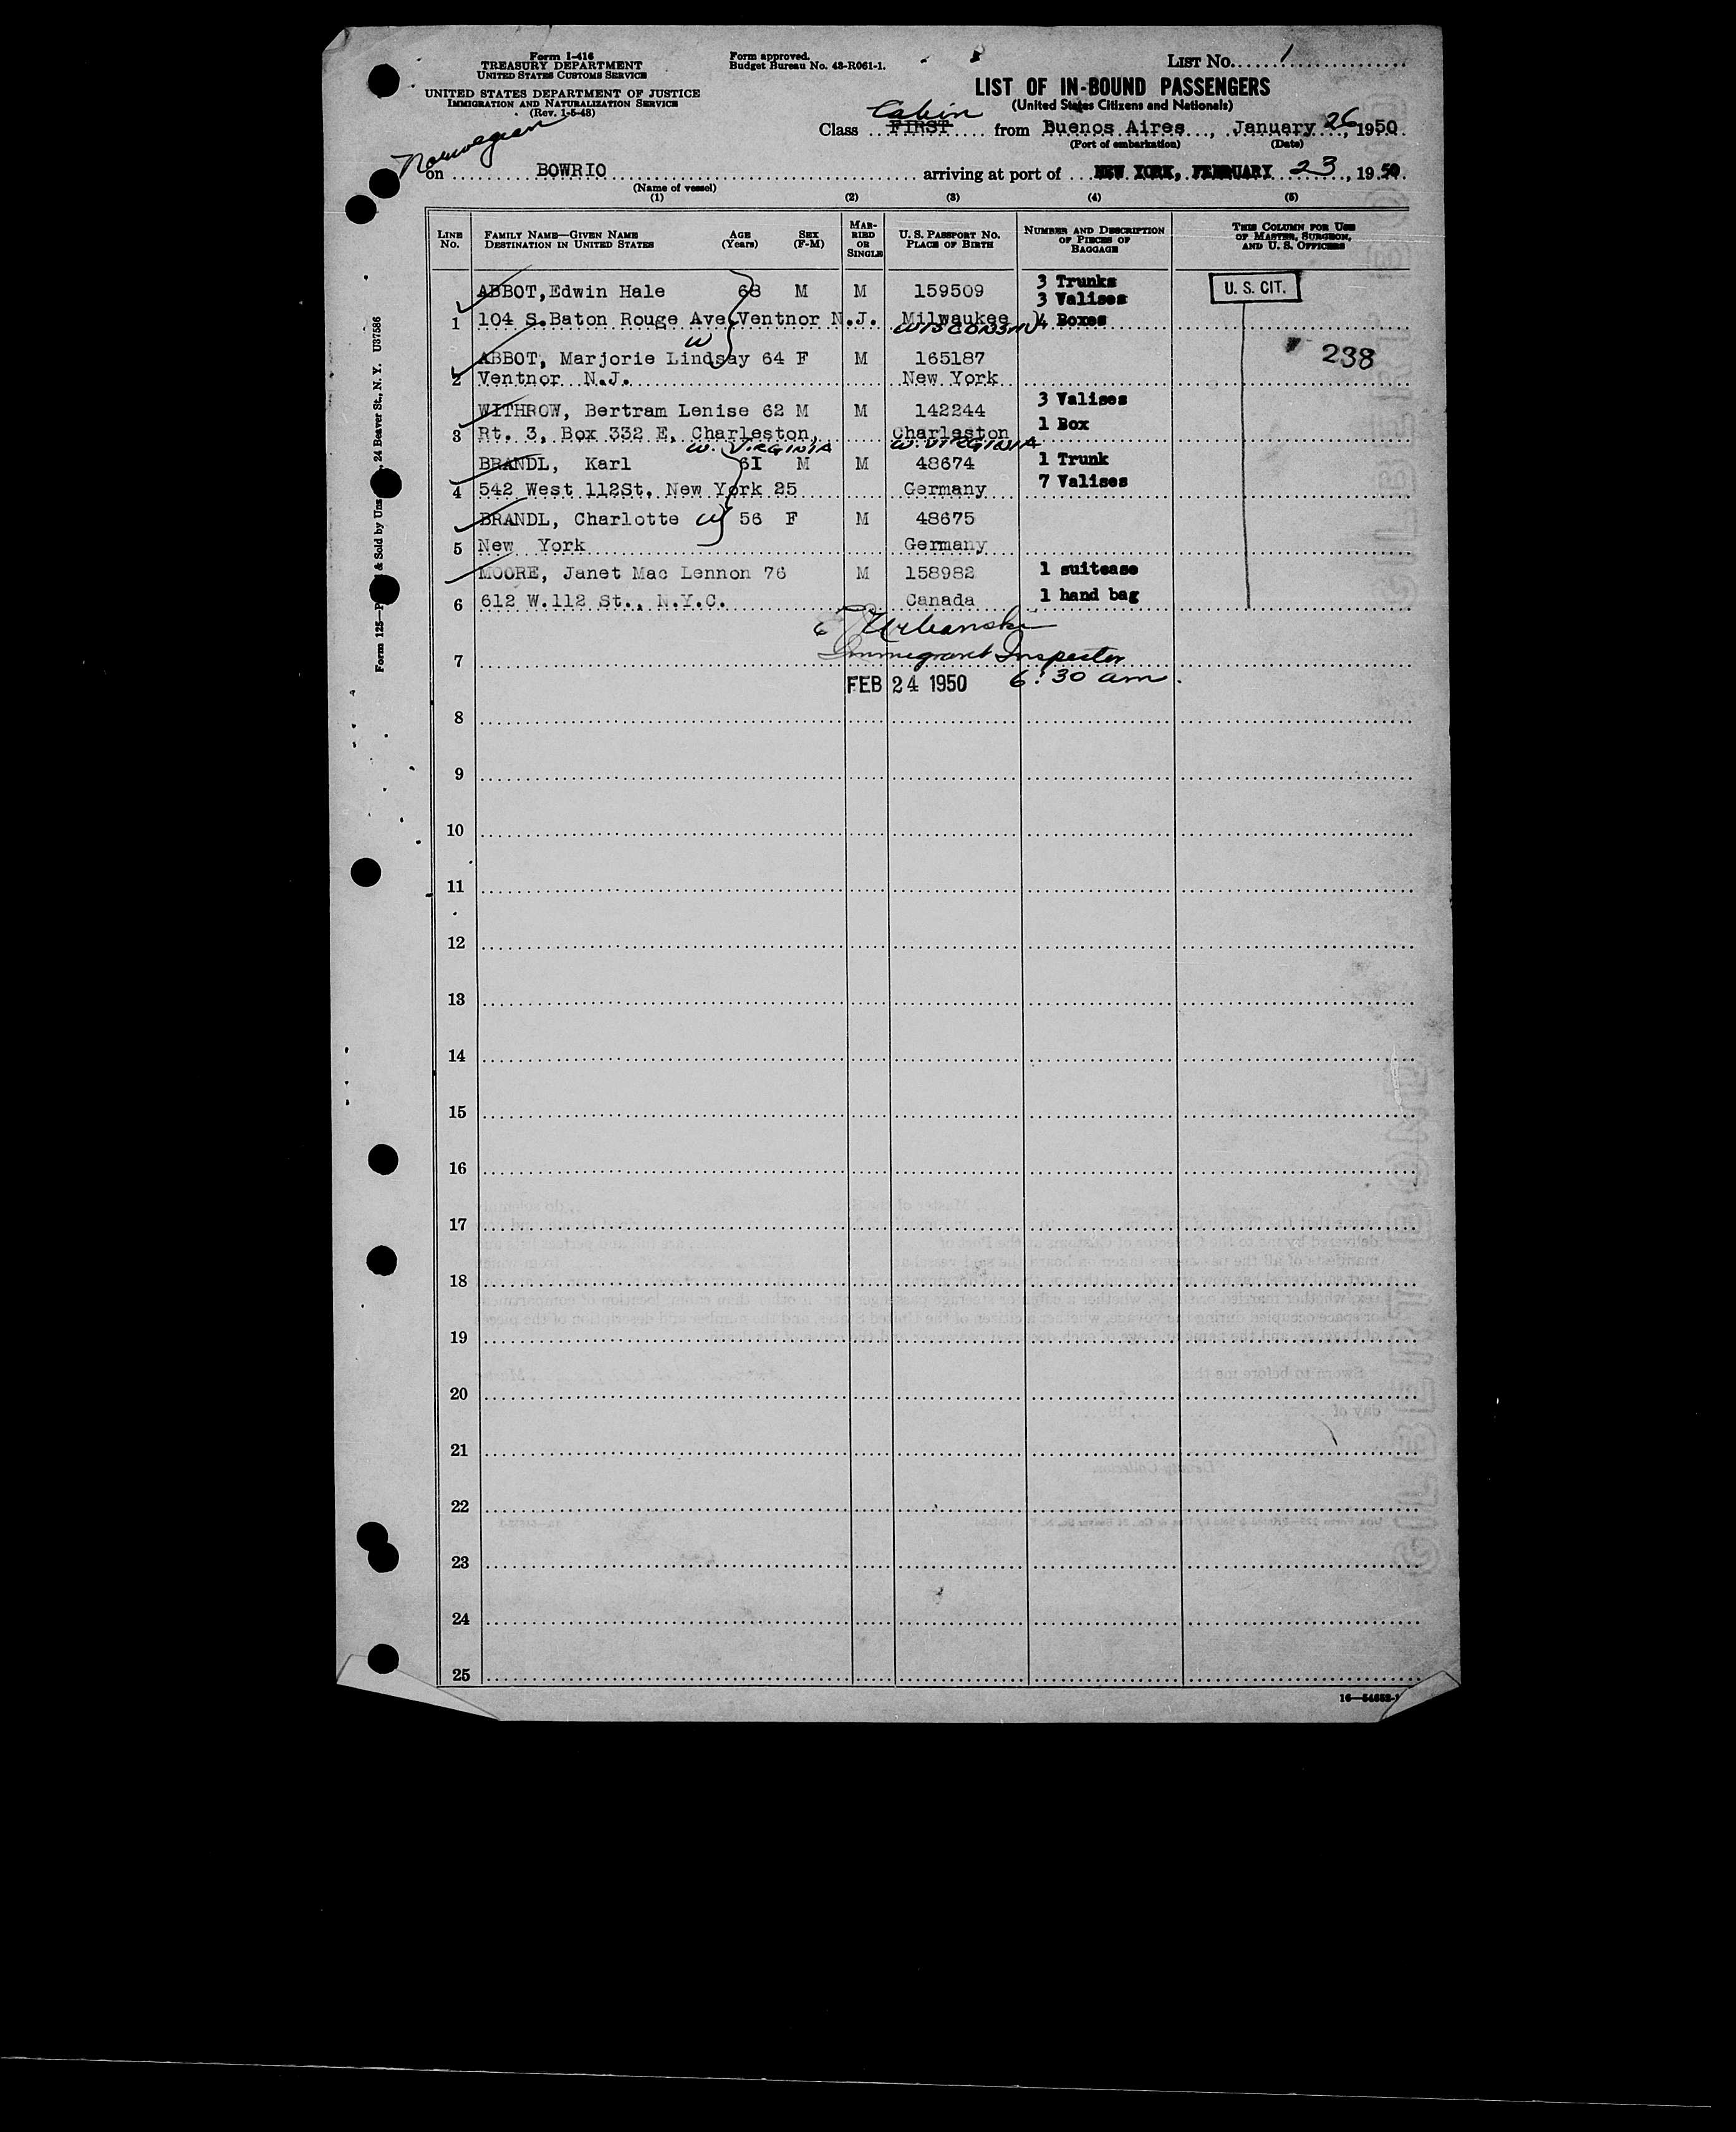 Form I-416
TREASURY DEPARTMENT
UNITED STATES CUSTOMS SERVICE
UNITED STATES DEPARTMENT OF JUSTICE
IMMIGRATION AND NATURALIZATION SERVICE
(Rev. 1-5-48)
Form approved.
Budget Bureau No. 43-R061-1.
LIST No. 1
LIST OF IN-BOUND PASSENGERS
(United States Citizens and Nationals)
Cabin
Class FIRST from Buenos Aires, January 26, 1950
(Port of embarkation) (Date)
Norwegian
on BOWRIO arriving at port of NEW YORK, FEBRUARY 23, 1950.
(Name of vessel)
(1) (2) (3) (4) (5)
LINE No. FAMILY NAME—GIVEN NAME DESTINATION IN UNITED STATES AGE (Years) SEX (F-M) MARRIED OR SINGLE U. S. PASSPORT No. PLACE OF BIRTH NUMBER AND DESCRIPTION OF PIECES OF BAGGAGE THIS COLUMN FOR USE OF MASTER, SURGEON, AND U. S. OFFICERS
ABBOT, Edwin Hale 68 M M 159509 3 Trunks
3 Valises U. S. CIT.
1 104 S. Baton Rouge Ave Ventnor N.J. Milwaukee 4 Boxes
WISCONSIN
w
ABBOT, Marjorie Lindsay 64 F M 165187 238
2 Ventnor N.J. New York
WITHROW, Bertram Lenise 62 M M 142244 3 Valises
3 Rt. 3, Box 332 E, Charleston, Charleston 1 Box
W. VIRGINIA W. VIRGINIA
BRANDL, Karl 6I M M 48674 1 Trunk
4 542 West 112St. New York 25 Germany 7 Valises
BRANDL, Charlotte w 56 F M 48675
5 New York Germany
MOORE, Janet Mac Lennon 76 M 158982 1 suitease
6 612 W.112 St., N.Y.C. Canada 1 hand bag
Urbanski
7 Immigrant Inspector
FEB 24 1950 6:30 am.
8
9
10
11
12
13
14
15
16
17
18
19
20
21
22
23
24
25
& Sold by 24 Beaver St., N. Y. U37586
Form 125—